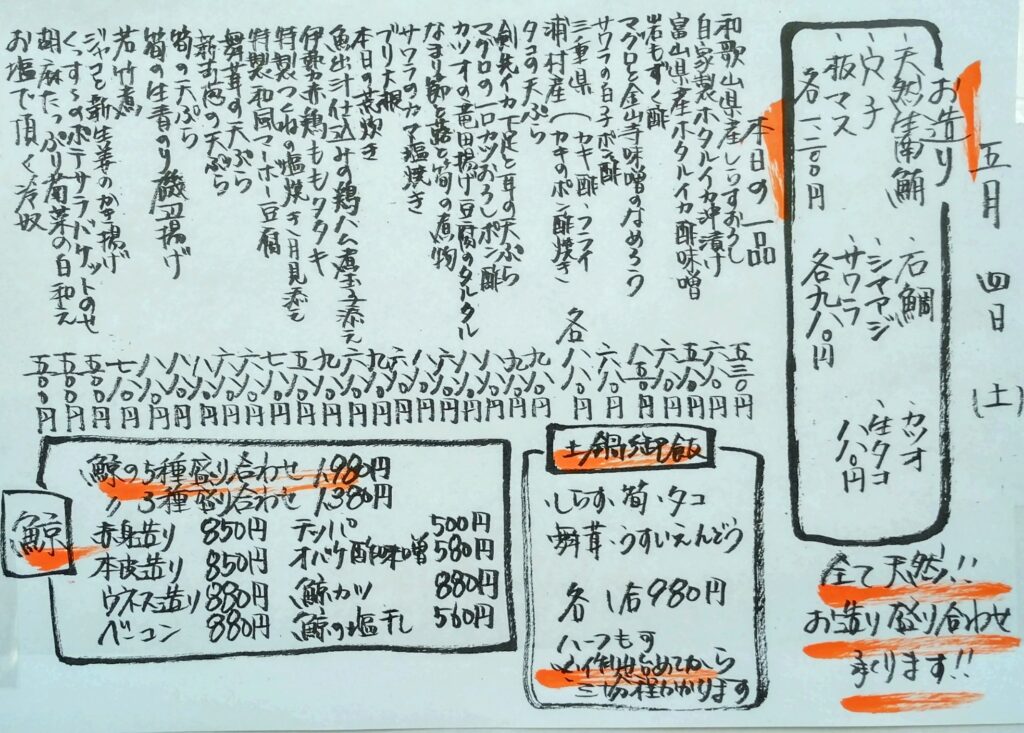 五月 四日 (土)
お造り
、天然生南鮪 、石鯛 、カツオ
、穴子 、シマアジ 、生タコ
マス 、サワラ 八八〇円
各九八〇円
全て天然!!
お造り盛り合わせ
承ります!!
本日の一品
和歌山県産しらすおろし 五三〇円
自家製ホタルイカ沖漬け 六八〇円
富山県産ホタルイカ酢味噌 五八〇円
岩もずく酢
マグロと金山寺味噌のなめろう
サワラの白子ポン酢 六八〇円
三重県 (カキ酢・フライ
浦村産 (カキのポン酢焼き 各八八〇円
タコの天ぷら
剣先イカ下足と耳の天ぷら
マグロの一口カツおろしポン酢
カツオの竜田揚げ豆腐のタルタル
なまり節と蕗と筍の煮物
サワラのカマ塩焼き
ブリ大根
本日の荒炊き
魚出汁仕込みの鶏ハム煮玉子添え
伊勢赤鶏ももタタキ
特製つくねの塩焼き月見添え
特製和風マーボー豆腐
舞茸の天ぷら
新玉葱の天ぷら
筍の天ぷら
筍の生青のり磯辺揚げ
若竹煮
ジャコと新生姜のかき揚げ
くっすーのポテサラバケットのせ
胡麻たっぷり菊菜の白和え
お塩で頂く冷奴
土鍋御飯
、しらす、筍、タコ
舞茸、うすいえんどう
各 1合980円
ハーフもす
※作り始めてから
三〇分程かかります
鯨
鯨の5種盛り合わせ 1,980円
〃 3種盛り合わせ 1,380円
赤身造り 850円 テッパ 500円
本皮造り 850円 オバケ酢味噌 580円
ウネス造り 880円 鯨カツ 880円
ベーコン 880円 鯨の塩干し 560円